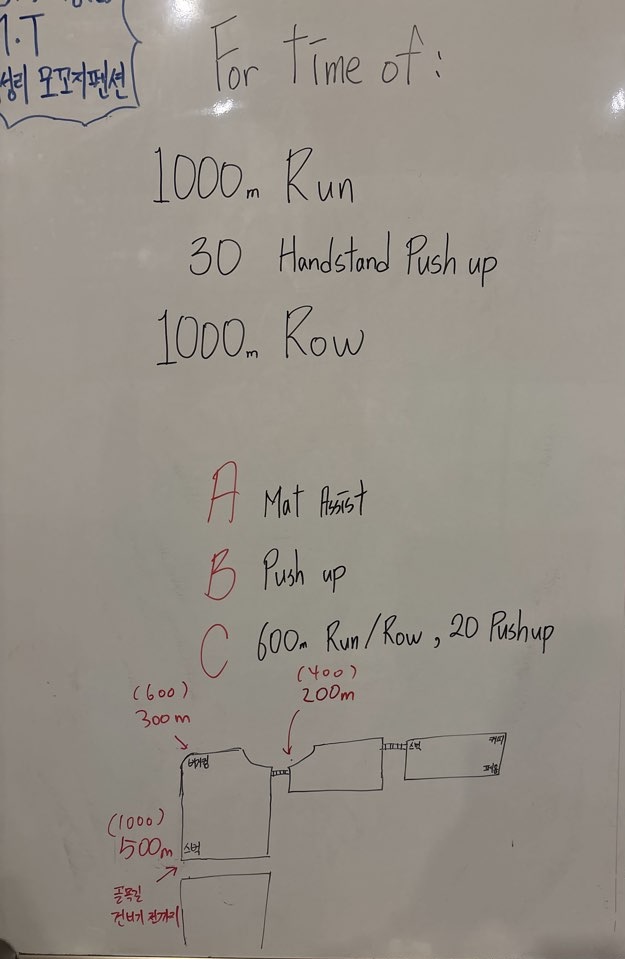 M.T
모꼬지펜션
For time of:
1000m Run
30 Handstand Push up
1000m Row
A Mat Assist
B Push up
C 600m Run/Row, 20 Pushup
(400)
200m
(600)
300m
버거킹
스벅
커피
(1000)
500m
스벅
골목길
건너기 전까지